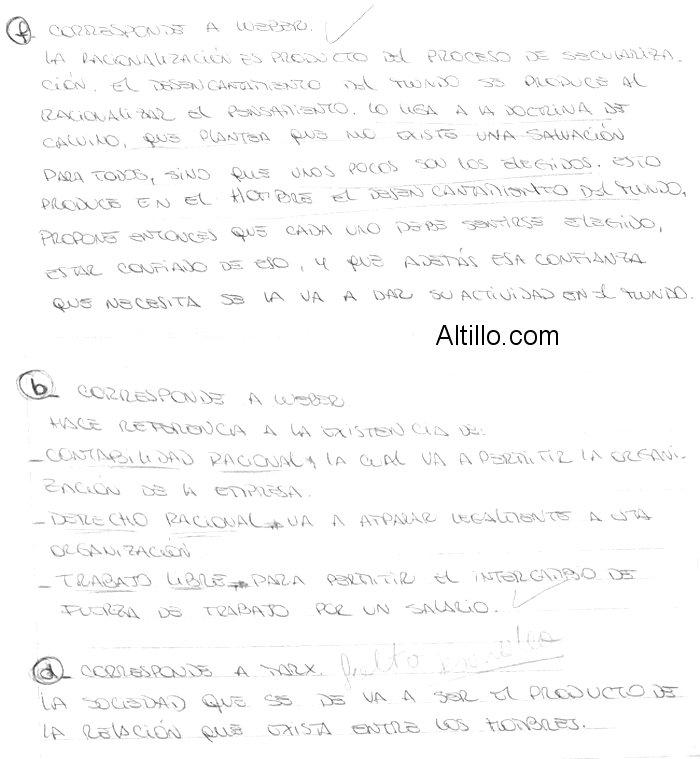 f CORRESPONDE A WEBER.
LA RACIONALIZACIÓN ES PRODUCTO DEL PROCESO DE SECULARIZA-
CIÓN. EL DESENCANTAMIENTO DEL MUNDO SE PRODUCE AL
RACIONALIZAR EL PENSAMIENTO. LO LIGA A LA DOCTRINA DE
CALVINO, QUE PLANTEA QUE NO EXISTE UNA SALVACIÓN
PARA TODOS, SINO QUE UNOS POCOS SON LOS ELEGIDOS. ESTO
PRODUCE EN EL HOMBRE EL DESENCANTAMIENTO DEL MUNDO,
PROPONE ENTONCES QUE CADA UNO DEBE SENTIRSE ELEGIDO,
ESTAR CONFIADO DE ESO, Y QUE ADEMÁS ESA CONFIANZA
QUE NECESITA SE LA VA A DAR SU ACTIVIDAD EN EL MUNDO.
Altillo.com
b CORRESPONDE A WEBER
HACE REFERENCIA A LA EXISTENCIA DE:
- CONTABILIDAD RACIONAL, LA CUAL VA A PERMITIR LA ORGANI-
ZACIÓN DE LA EMPRESA.
- DERECHO RACIONAL VA A AMPARAR LEGALMENTE A ESTA
ORGANIZACIÓN
- TRABAJO LIBRE PARA PERMITIR EL INTERCAMBIO DE
FUERZA DE TRABAJO POR UN SALARIO.
d CORRESPONDE A MARX.
LA SOCIEDAD QUE SE DE VA A SER EL PRODUCTO DE
LA RELACIÓN QUE EXISTA ENTRE LOS HOMBRES.